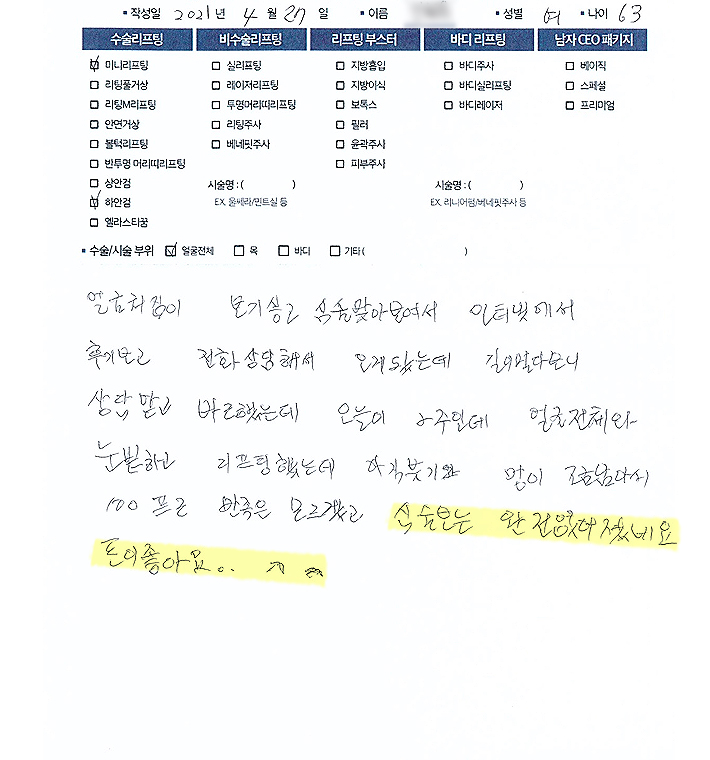 ▪ 작성일 2021 년 4 월 27 일 ▪ 이름 ▪ 성별 여 ▪ 나이 63
수술리프팅 비수술리프팅 리프팅 부스터 바디 리프팅 남자 CEO 패키지
미니리프팅 실리프팅 지방흡입 바디주사 베이직
리팅풀거상 레이저리프팅 지방이식 바디실리프팅 스페셜
리팅M리프팅 투명머리띠리프팅 보톡스 바디레이저 프리미엄
안면거상 리팅주사 필러
볼턱리프팅 베네핏주사 윤곽주사
반투명 머리띠리프팅 피부주사
상안검 시술명 : ( ) 시술명 : ( )
하안검 EX. 울쎄라/민트실 등 EX. 리니어펌/베네핏주사 등
엘라스티꿈
▪ 수술/시술 부위 얼굴전체 목 바디 기타 ( )
얼굴처짐이 보기싫고 심술맞아보여서 인터넷에서
후기보고 전화상담해서 오게됐는데 길이멀다보니
상담받고 바로했는데 오늘이 2주인데 얼굴전체와
눈밑하고 리프팅했는데 아직붓기와 멍이 조금남아서
100 프로 만족은 모르겠고 심술보는 완전없어졌네요
튼의좋아요.. ^ ^